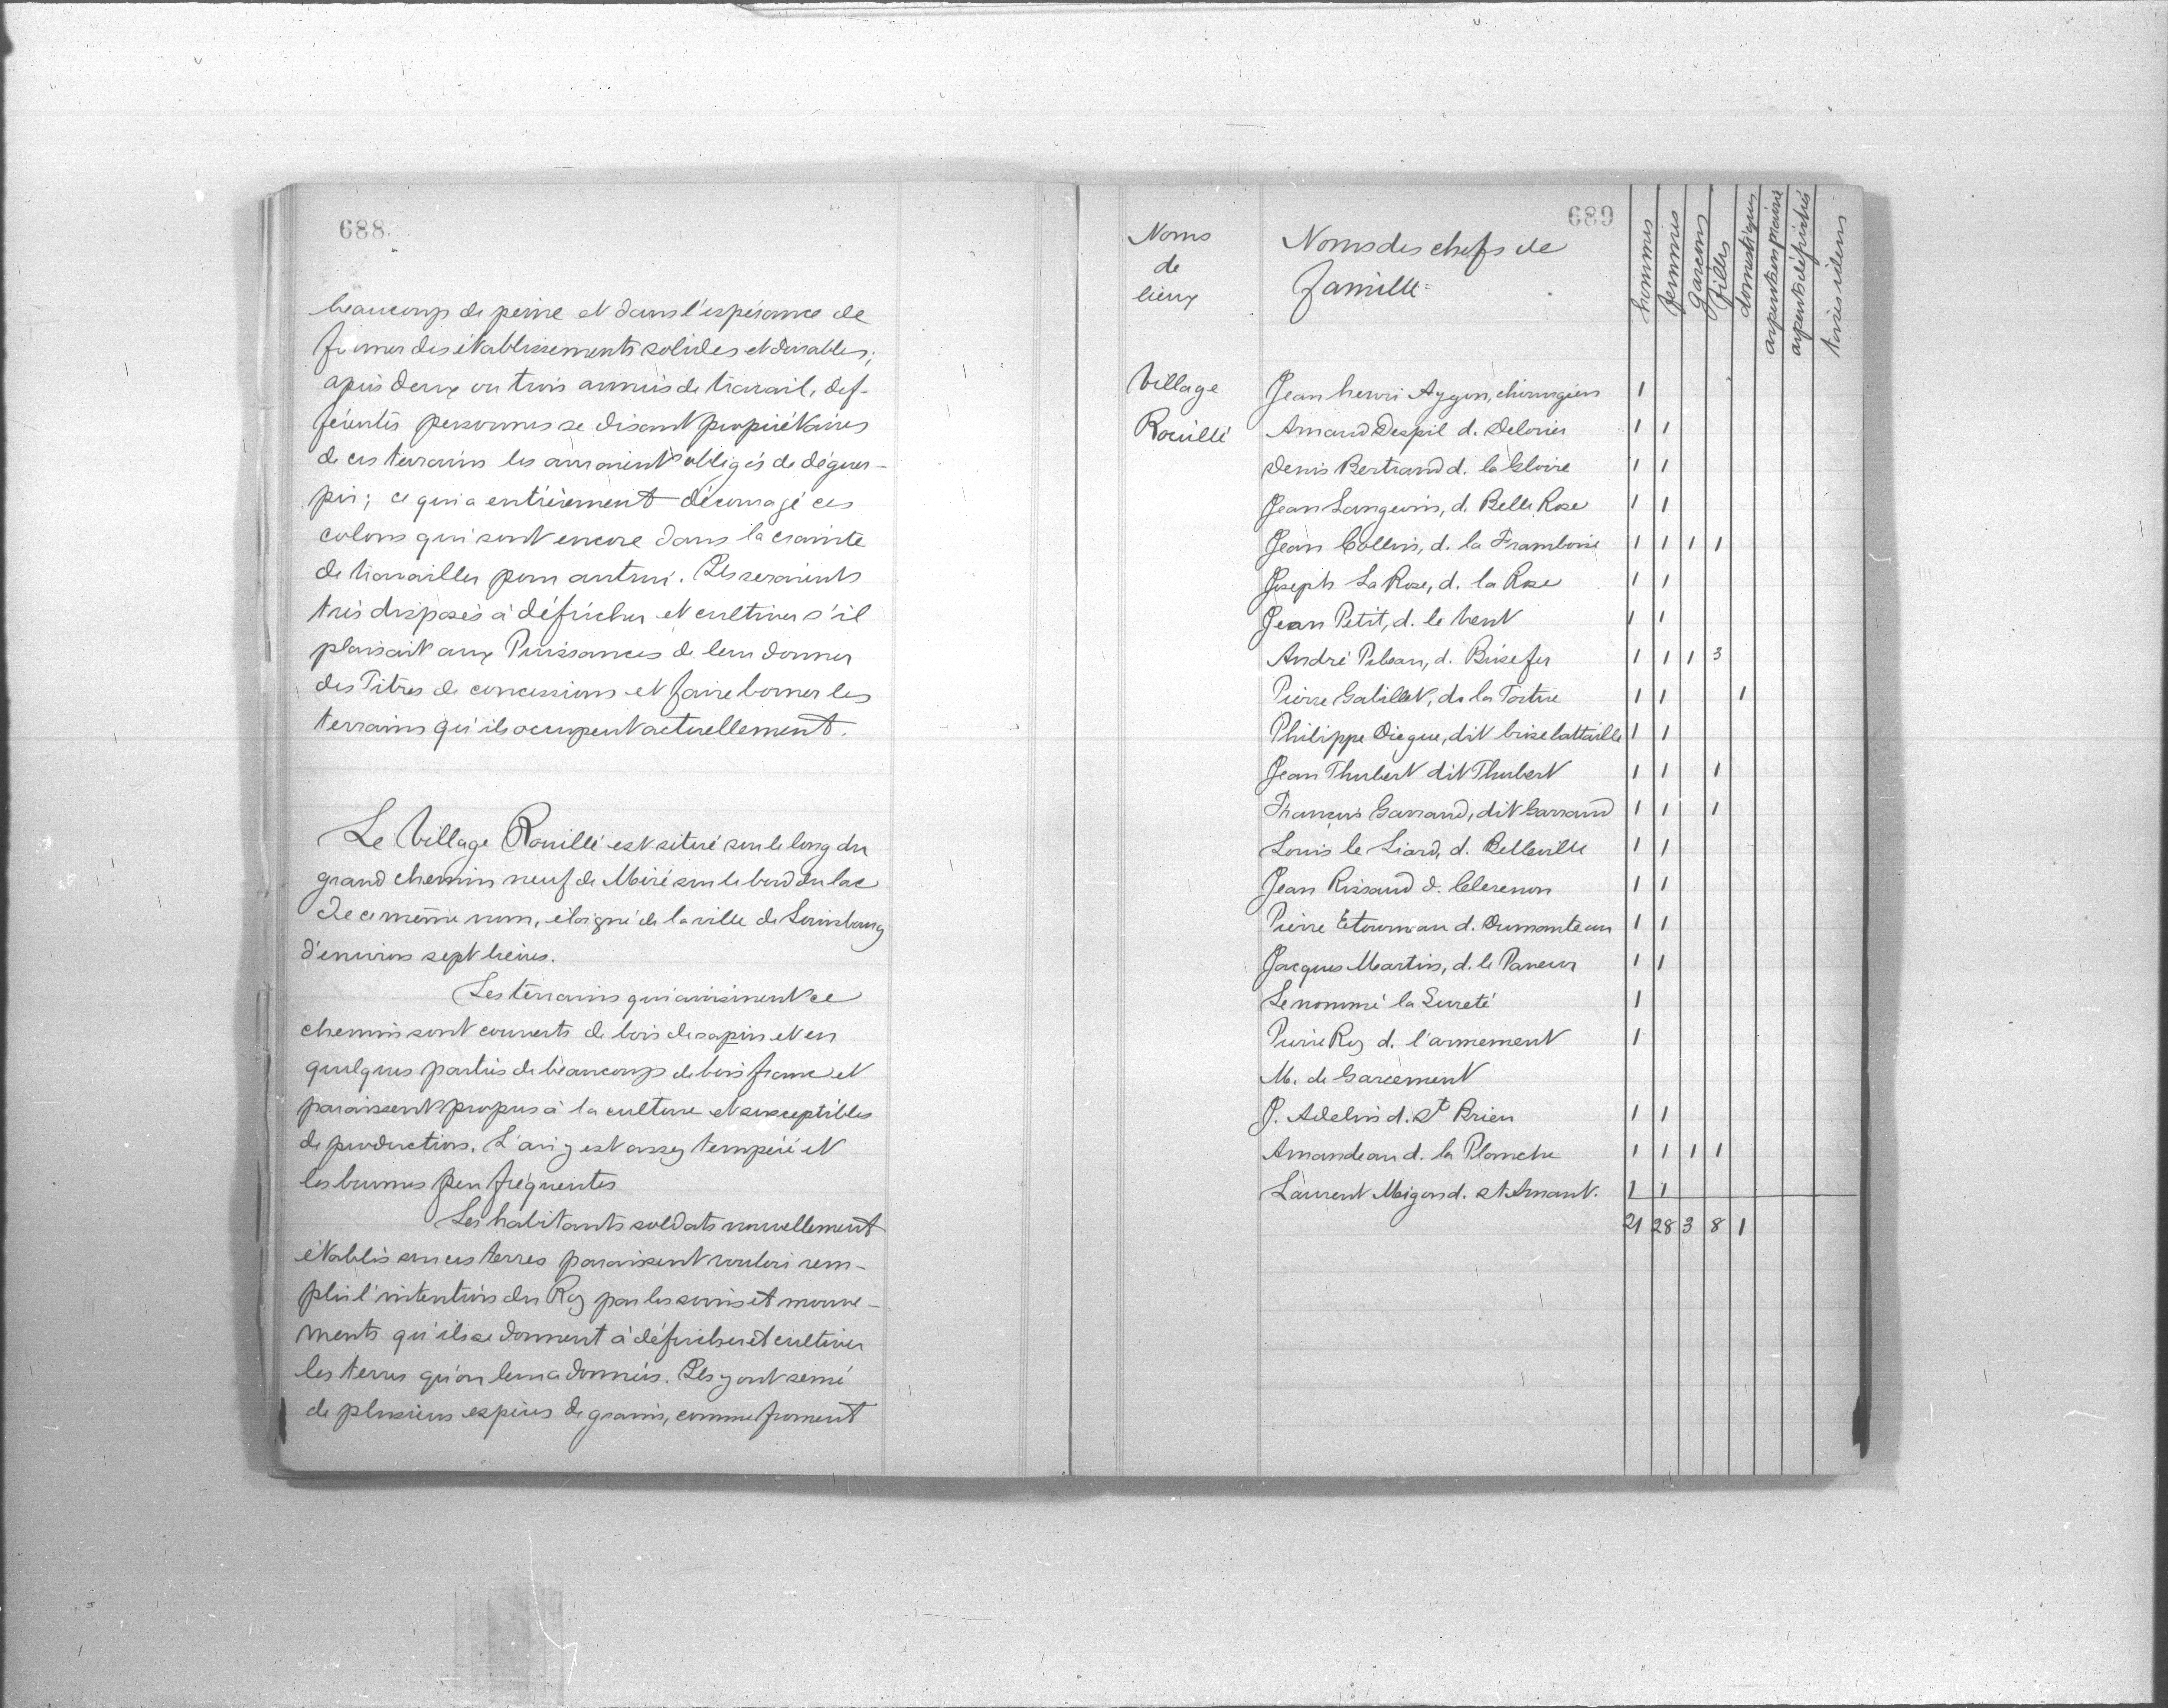 688
beaucoup de peine et dans l'espérance de
former des établissements solides et durables;
après deux ou trois années de travail, dif-
férentes personnes se disant propriétaires
de ces terrains les auraient obligés de déguer-
pir; ce qui a entièrement découragé ces
colons qui sont encore dans la crainte
de travailler pour autrui. Ils seraient
très disposés à défricher et cultiver s'il
plaisait aux Puissances de leur donner
des Titres de concessions et faire borner les
terrains qu'ils occupent actuellement.
Le Village Rouillé est situé sur le long du
grand chemin neuf de Miré sur le bord du lac
de ce même nom, éloigné de la ville de Louisbourg
d'environ sept lieues.
Les terrains qui avoisinent ce
chemin sont couverts de bois de sapin et en
quelques parties de beaucoup de bois franc et
paraissent propres à la culture et susceptibles
de production. L'air y est assez tempéré et
les brumes peu fréquentes
Les habitants soldats nouvellement
établis sur ces terres paraissent vouloir rem-
plir l'intention du Roy par les soins et mouve-
ments qu'ils se donnent à défricher et cultiver
les terres qu'on leur a données. Ils y ont semé
de plusieurs espèces de grains, comme froment
689
Noms de lieux
Noms des chefs de famille
hommes
femmes
garçons
filles
domestiques
arpents en prairie
arpents défrichés
Village Rouillé
Jean henri Aygon, chirurgien 1
Arnaud Despil d. Delorier 1 1
Denis Bertrand d. la Gloire 1 1
Jean Langevin, d. Belle Rose 1 1
Jean Collin, d. la Framboise 1 1 1 1
Joseph La Rose, d. la Rose 1 1
Jean Petit, d. le Vent 1 1
André Pileau, d. Brisefer 1 1 1 3
Pierre Galillet, d. la Tortue 1 1 1
Philippe Diegue, dit brise battaille 1 1
Jean Thubert dit Thubert 1 1 1
François Garraud, dit Garraud 1 1 1
Louis le Liard, d. Belleville 1 1
Jean Rissaud d. 1 1
Pierre Etourneau d. Dumanteau 1 1
Jacques Martin, d. le Paneur 1 1
Le nommé la Sureté 1
Pierre Roy d. l'armement 1
M. de Garcement
J. Adelin d. St Brien 1 1
Amandeau d. la Planche 1 1 1 1
Laurent Migon d. St Amant. 1 1
21 28 3 8 1